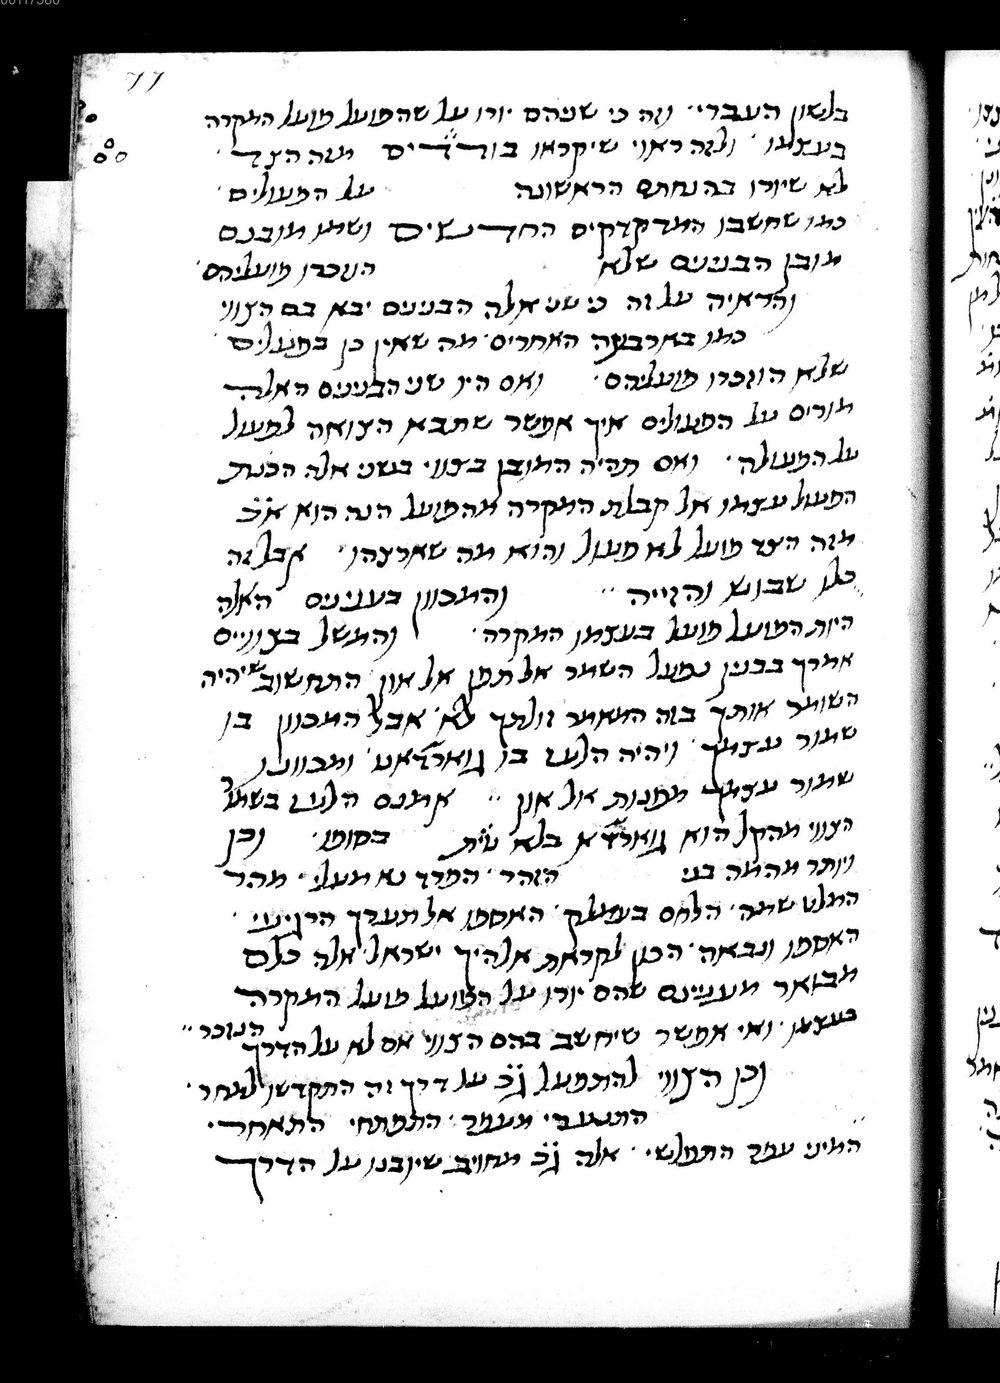 77
בלשון העברי׳ וזה כי שניהם יורו על שהפועל פועל המקרה
בעצמו ׳ ולזה ראוי שיקראו בודדים מזה הצד ׳
לא שיורו בהנחתם הראשונה על הפעולים ׳
כמו שחשבו המדקדקים החדשים ושמו מובנם
מובן הבנינים שלא הוזכרו פועליהם ׳
והראיה על זה כי שני אלה הבנינים יבא בם הצווי
כמו בארבעה האחרים ׳ מה שאין כן בפעלים
שלא הוזכרו פועליהם ׳ ואם היו שני הבנינים האלה
מורים על הפעולים איך אפשר שתבא הצואה לפעול
על הפעולה ׳ ואם תהיה המובן בצווי בשני אלה הכנת
הפעול עצמו אל קבלת המקרה מהפועל הנה הוא א״כ
מזה הצד פועל לא פעול והוא מה שארצהו ׳ אבל זה
כלו שבוש והזייה ׳׳ והמכוון בענינים האלה
היות הפועל פועל בעצמו המקרה ׳ והמשל בצוויים
אמרך בבנין נפעל השמר אל תפן אל און התחשוב שיהיה
השומר אותך בזה המאמר זולתך לא ׳ אבל המכוון בו
שמור עצמך ׳ ויהיה הלעז בו גוארדאטי ׳ ומכוונו
שמור עצמך מפנות אל און ׳׳ אמנם הלעז בשמר
הצווי מהקל הוא גוארדא בלא טי״ת בסופו ׳ וכן
ויותר מהמה בני הזהר ׳ הפרד נא מעלי ׳ מהר
המלט שמה ׳ הלחם בעמלק ׳ האספו אל תערך הרגיעי ׳
האספו ונבאה ׳ הכון לקראת אלהיך ישראל ׳ אלה כלם
מבואר מענינם שהם יורו על הפועל פועל המקרה
בעצמו ׳ ואי אפשר שיחשב בהם הצווי אם לא על הדרך הנזכר ׳׳
וכן הצווי להתפעל ג״כ על דרך זה התקדשו למחר ׳
התנערי מעפר ׳ התפתחי ׳ התאחדי ׳
הימיני עפר התפלשי ׳ אלה ג״כ מחויב שיובנו על הדרך